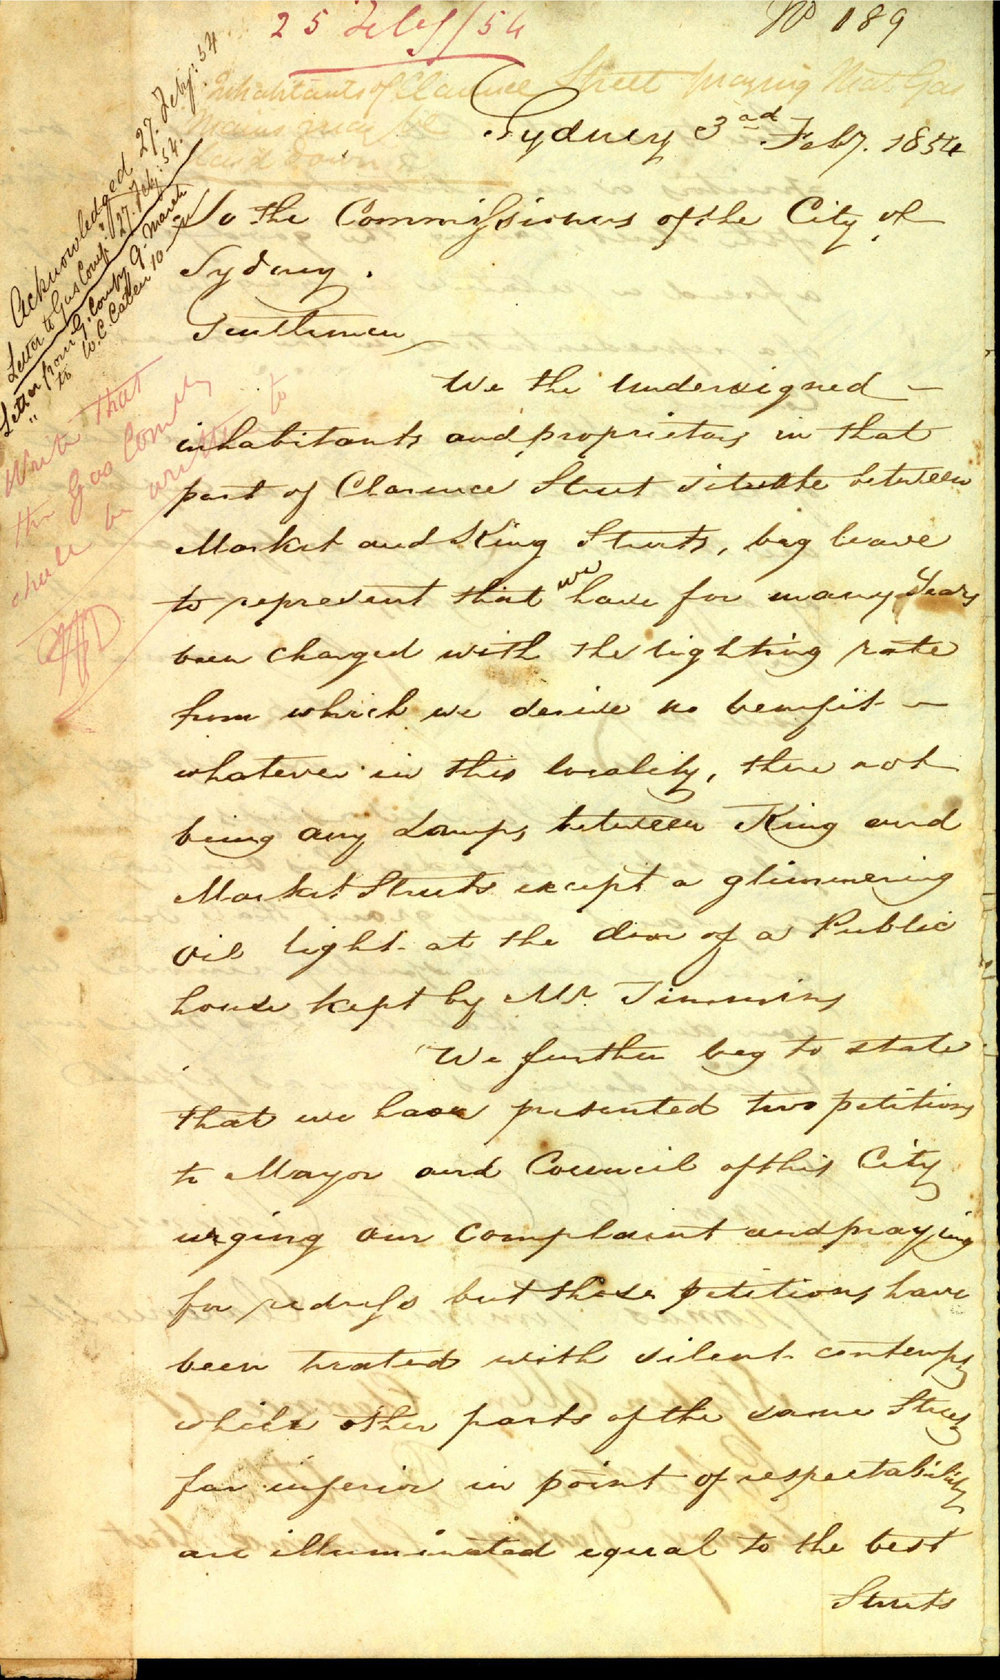 25 Feby/54
No 189
Inhabitants of Clarence Street praying that Gas
Mains may be
laid down
Sydney 3rd Feby. 1854
Acknowledged 27. Feby: 54
Letter to Gas Comp. 27. Feby: 54.
Letter from G. Compy 9. March
" to W. C. Cabeen 10
Write that
the Gas Compy
shall be written to
To the Commissioners of the City of
Sydney.
Gentlemen
We the Undersigned –
inhabitants and proprietors in that
part of Clarence Street situate between
Market and King Streets, beg leave
to represent that we have for many Years
been charged with the lighting rate
from which we derive no benefit –
whatever in this locality, there not
being any Lamps between King and
Market Streets except a glimmering
oil light at the door of a Public
house kept by Mr. Timmins
We further beg to state
that we have presented two petitions
to Mayor and Council of this City
urging our Complaint and praying
for redress but those petitions have
been treated with silent contempt
while other parts of the same Street
far inferior in point of respectability
are illuminated equal to the best
Streets